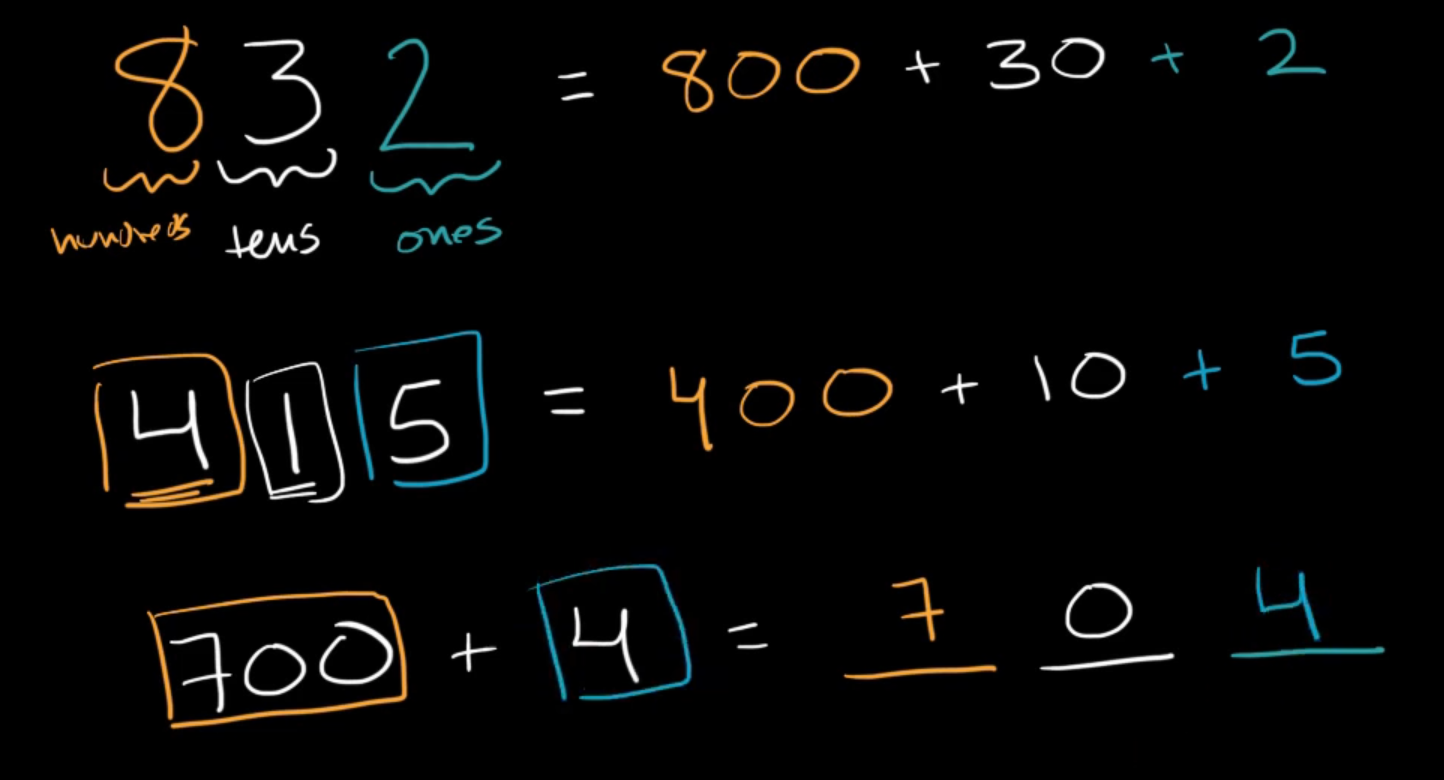 832 = 800 + 30 + 2
hundreds tens ones
415 = 400 + 10 + 5
700 + 4 = 7 0 4